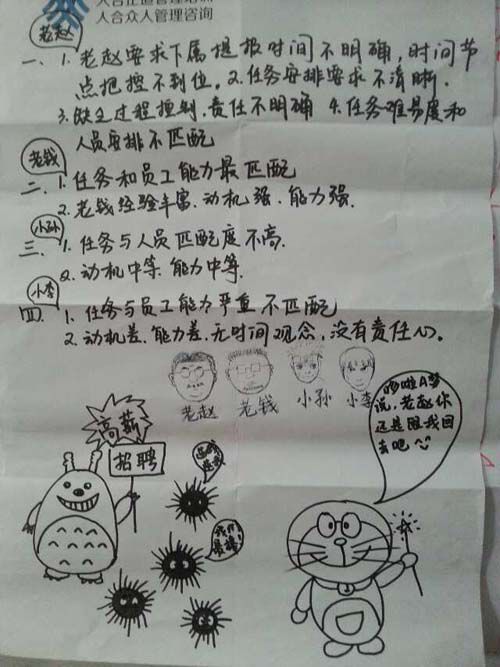 人合正道管理培训
人合众人管理咨询
老赵
一、1.老赵要求下属提报时间不明确,时间节
点把控不到位.2.任务安排要求不清晰.
3.缺乏过程控制,责任不明确 4.任务难易度和
人员安排不匹配
老钱
二、1.任务和员工能力最匹配
2.老钱经验丰富.动机强.能力强.
小孙
三、1.任务与人员匹配度不高.
2.动机中等.能力中等.
小李
四、1.任务与员工能力严重不匹配
2.动机差.能力差.无时间观念,没有责任心。
老赵 老钱 小孙 小李
高薪
招聘
选我
我们
最棒!
哆啦A梦
说,老赵你
还是跟我回
去吧